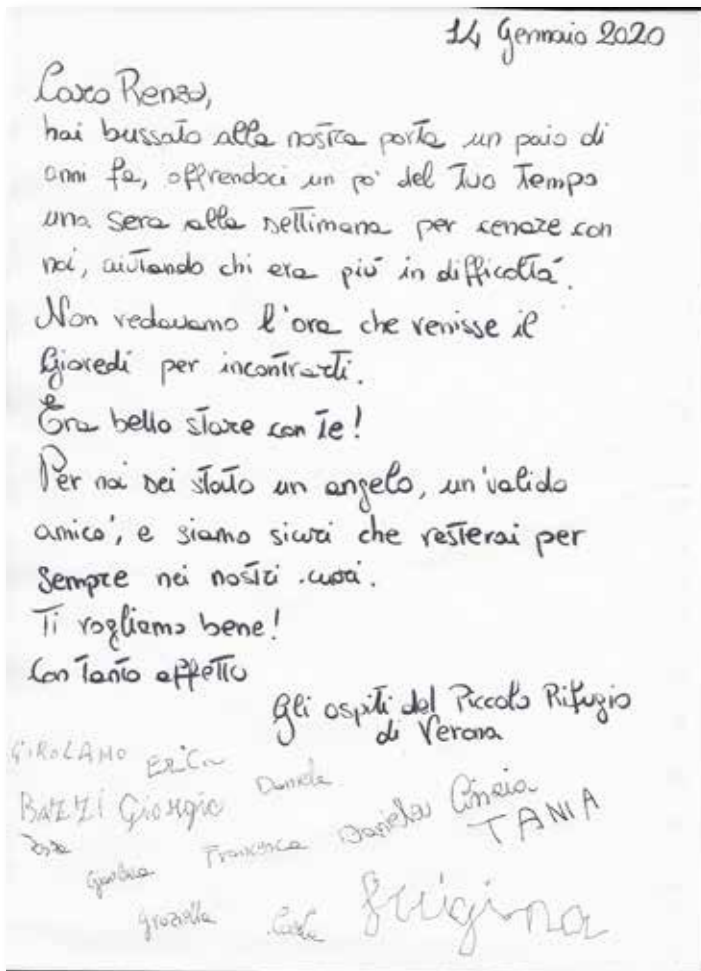 14 Gennaio 2020
Caro Renzo,
hai bussato alla nostra porta un paio di
anni fa, offrendoci un po' del Tuo Tempo
una sera alla settimana per cenare con
noi, aiutando chi era più in difficoltà.
Non vedavamo l'ora che venisse il
Giovedì per incontrarti.
Era bello stare con Te!
Per noi sei stato un angelo, un'valido
amico', e siamo sicuri che resterai per
sempre nei nostri cuori.
Ti vogliamo bene!
Con Tanto affetto
Gli ospiti del Piccolo Rifugio
di Verona
GIROLAMO Erica Daniela
BAZZI Giorgio Daniela Cinzia
TANIA
Francesca
Graziella Carla Luigina